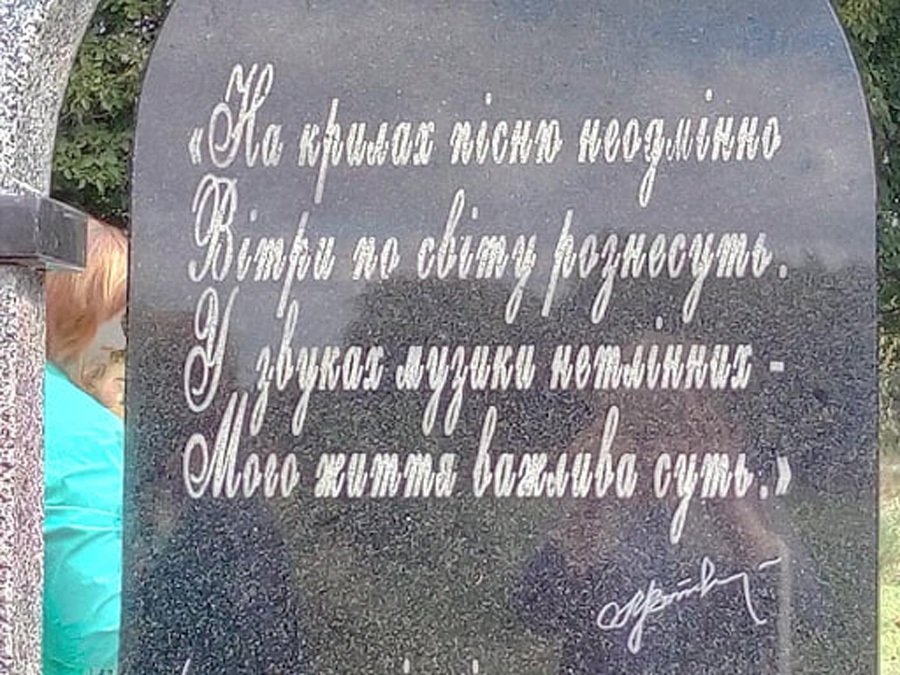 «На крилах пісню неодмінно
Вітри по світу рознесуть.
У звуках музики нетлінних -
Мого життя важлива суть.»